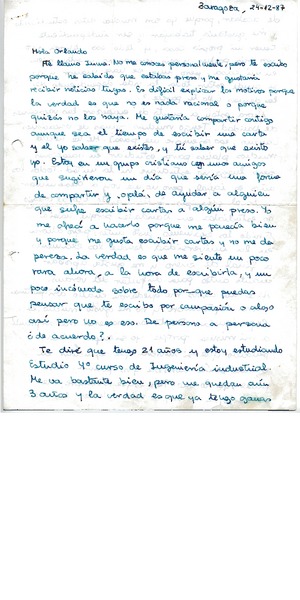 Zaragoza, 24-12-87
Hola Orlando
Me llamo Inma. No me conoces personalmente, pero te escribo
porque he sabido que estabas preso y me gustaría
recibir noticias tuyas. Es difícil explicar los motivos porque
la verdad es que no es nada racional o porque
quizás no los haya. Me gustaría compartir contigo
aunque sea el tiempo de escribir una carta
y el yo saber que existes, y tú saber que existo
yo. Estoy en un grupo cristiano con unos amigos
que sugirieron un día que sería una forma
de compartir y, ojalá, de ayudar a alguien
que sufre escribir cartas a algún preso. Yo
me ofrecí a hacerlo porque me parecía bien
y porque me gusta escribir cartas y no me da
pereza. La verdad es que me siento un poco
rara ahora, a la hora de escribirla, y un
poco incómoda sobre todo por que puedas
pensar que te escribo por compasión o algo
así pero no es eso. De persona a persona
¿de acuerdo?.
Te diré que tengo 21 años y estoy estudiando
Estudio 4º curso de Ingeniería industrial.
Me va bastante bien, pero me quedan aún
3 años y la verdad es que ya tengo ganas